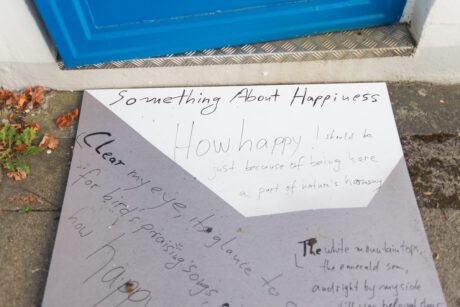 Something About Happiness
How happy I should be
just because of being here
a part of nature's harmony
Clear my eye, its glance to
for birds praising songs
how happy
The white mountain tops,
the emerald sea,
and right by my side